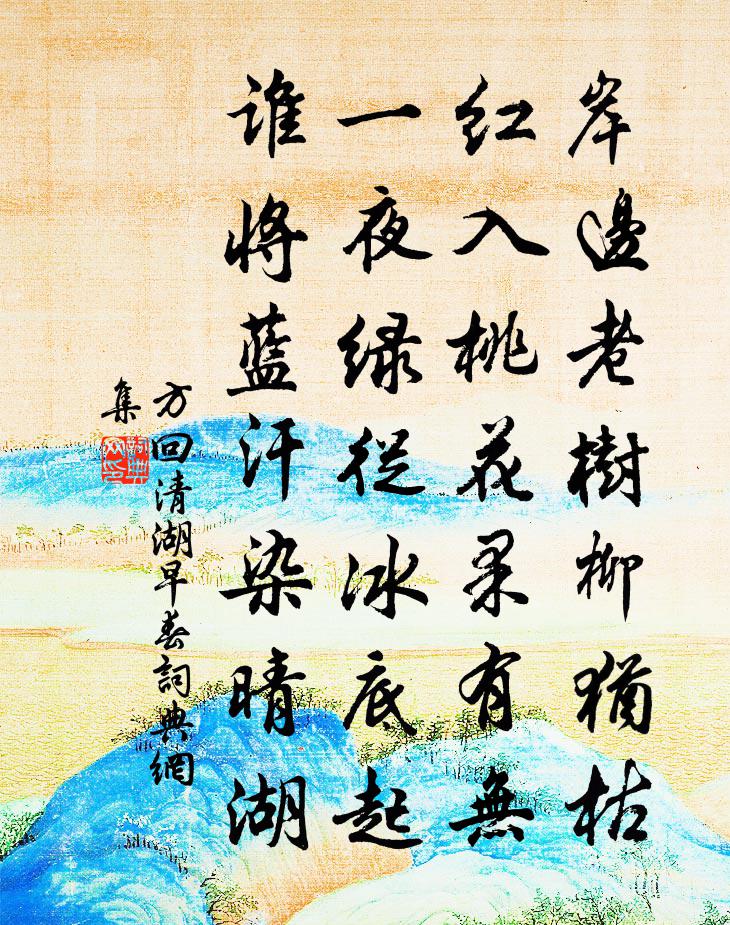 岸邊老樹柳猶枯
红入桃花果有無
一夜绿從冰底起
誰將藍汗染晴湖
方回清湖早春詞典網
集